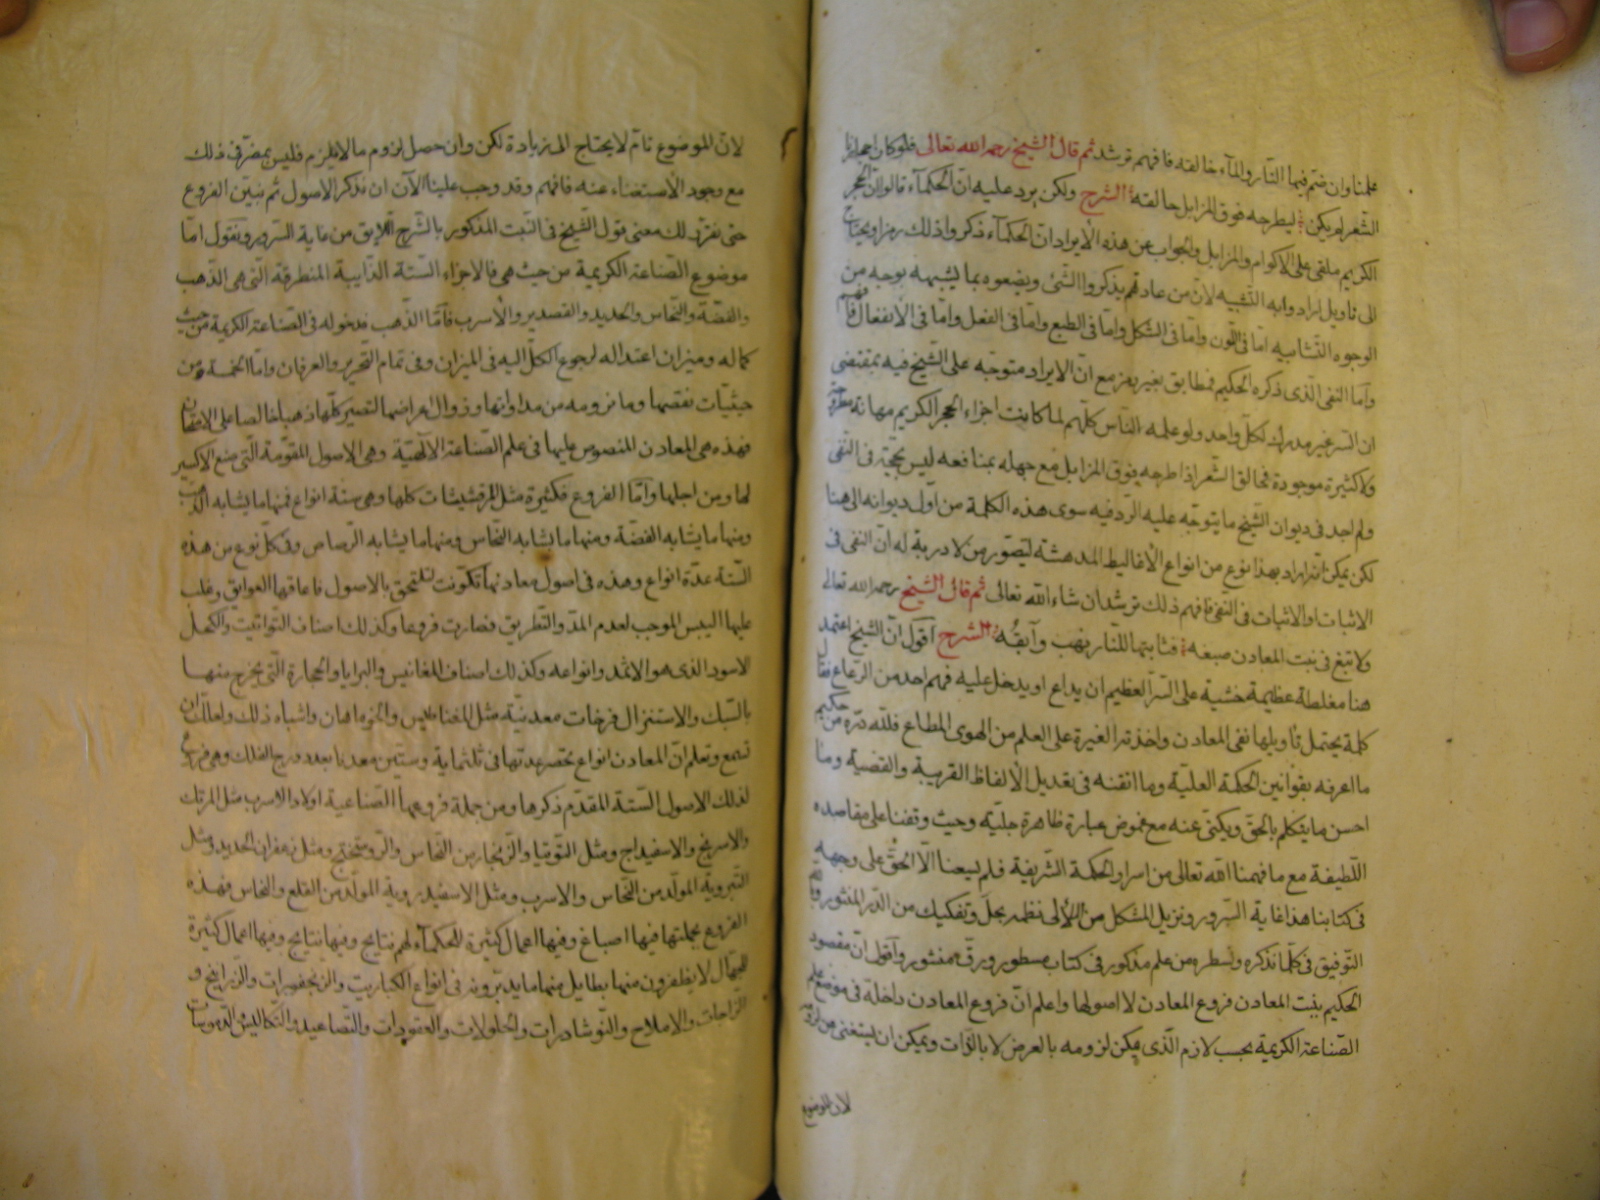 علمنا وان ضم فيها النار والمآء خالفه فافهم ترشد ثم قال الشيخ رحمه الله تعالى فلو كان احجارنا
الشعر لم يكن ليطرحه فوق المزابل حالقه الشرح ولكن يرد عليه ان الحكمآء قالوا ان الحجر
الكريم ملقى على الاكوام والمزابل والجواب عن هذه الايراد ان الحكمآء ذكروا ذلك رمزا ويحتاج
الى تاويل ارادوا به التشبيه لان من عادتهم يذكروا الشئ ويصفوه بما يشبهه بوجه من
الوجوه التشابيه اما فى اللون واما فى الشكل واما فى الطبع واما فى الفعل واما فى الانفعال فافهم
واما النفى الذى ذكره الحكيم فمطابق بغير رمز مع ان الايراد متوجه على الشيخ فيه بمقتضى
ان السر غير مدرك لكل واحد ولو علمه الناس كلهم لما كانت اجزاء الحجر الكريم مهانة مطروحة
ولا كثيرة موجودة فحالق الشعر اذا طرحه فوق المزابل مع جهله بمنافعه ليس بحجة فى النفى
ولم اجد فى ديوان الشيخ ما يتوجه عليه الرد فيه سوى هذه الكلمة من اول ديوانه الى هنا
لكن يمكن انه اراد بهذا نوع من انواع الاغاليط المدهشة ليتصور من لا دربة له ان النفى فى
الاثبات او الاثبات فى النفى فافهم ذلك ترشد ان شاء الله تعالى ثم قال الشيخ رحمه الله تعالى
ولا تبغ فى نبت المعادن صبغه فثابتها للنار يذهب وآبقه الشرح اقول ان الشيخ اعتمد
هنا مغلطة عظيمة خشية على السر العظيم ان يذاع او يدخل عليه فهم احد من الرعاع فقال
كلمة يحتمل تاويلها نفى المعادن واخذته الغيرة على العلم من الهوى المطاع فلله دره من حكيم
ما اعرفه بقوانين الحكمة العلية وما اتقنه فى تعديل الالفاظ القريبة والقصية وما
احسن ما يتكلم بالحق ويكنى عنه مع غموض عبارة ظاهرة جلية وحيث وقفنا على مقاصده
اللطيفة مع ما فهمنا الله تعالى من اسرار الحكمة الشريفة فلم يسعنا الا الحق على وجهه
فى كتابنا هذا غاية السرور ونزيل المشكل من اللآلى نظهر بحل وتفكيك من الدر المنثور وبالله
التوفيق فى كلما نذكره ونسطره من علم مذكور فى كتاب مسطور ورق منشور واقول ان مقصود
الحكيم بنبت المعادن فروع المعادن لا اصولها واعلم ان فروع المعادن داخلة فى موضوع علم
الصناعة الكريمة بحسب لازم الذى يمكن لزومه بالعرض لا بالذات ويمكن ان يستغنى عن لزومه
لان الموضوع
لان الموضوع تام لا يحتاج الى زيادة لكن وان حصل لزوم ما لا يلزم فليس بمضر فى ذلك
مع وجود الاستغناء عنه فافهم وقد وجب علينا الآن ان نذكر الاصول ثم نبين الفروع
حتى نقرر لك معنى قول الشيخ فى البيت المذكور بالشرح اللايق من غاية السرور ونقول اما
موضوع الصناعة الكريمة من حيث هى فالاجزاء الستة الذايبة المنطرقة التى هى الذهب
والفضة والنحاس والحديد والقصدير والأسرب فاما الذهب فدخوله فى الصناعة الكريمة من حيث
كماله وميزان اعتداله لرجوع الكل اليه فى الميزان وفى تمام التحرير والعرفان واما الخمسة من
حيثيات نقصها وما نرومه من مداواتها وزوال اعراضها لتصير كلها ذهبا خالصا على الامتحان
فهذه هى المعادن المنصوص عليها فى علم الصناعة الالهية وهى الاصول المقومة التى صنع الاكسير
لها ومن اجلها واما الفروع فكثيرة مثل المرقشيثات كلها وهى ستة انواع فمنها ما يشابه الذهب
ومنها ما يشابه الفضة ومنها ما يشابه النحاس ومنها ما يشابه الرصاص وفى كل نوع من هذه
الستة عدة انواع وهذه فى اصول معادنها تكونت لتلتحق بالاصول فاعاقها العوايق وغلب
عليها اليبس الموجب لعدم المد والتطريق فصارت فروعا وكذلك اصناف التواتيت والكحل
الاسود الذى هو الاثمد وانواعه وكذلك اصناف المغانيس والبرايا والحجارة التى يخرج منها
بالسبك والاستنزال فرخات معدنية مثل المغناطيس والخوماهان واشباه ذلك ولعلك ان
تسمع وتعلم ان المعادن انواع تحصر عدتها فى ثلثماية وستين معدنا بعدد درج الفلك وهى فروع
لذلك الاصول الستة المقدم ذكرها ومن جملة فروعها الصناعية اولاد الاسرب مثل المرتك
والاسرنج والاسفيداج ومثل التوتيا والزنجار من النحاس والروسختج ومثل زعفران الحديد ومثل
الشبروية المولد من النحاس والاسرب ومثل الاسفيدروية المولد من القلع والنحاس فهذه
الفروع بجملتها فيها اصباغ وفيها اعمال كثيرة للحكمآء لهم نتايج وفيها نتايج وفيها اعمال كثيرة
للجهال لا يظفرون منها بطايل منها ما يدبرونه فى انواع الكباريت والزنجفورات والزرانيخ و
الزاجات والاملاح والنوشادرات والمحلولات والمعقودات والتصاعيد والتكاليس